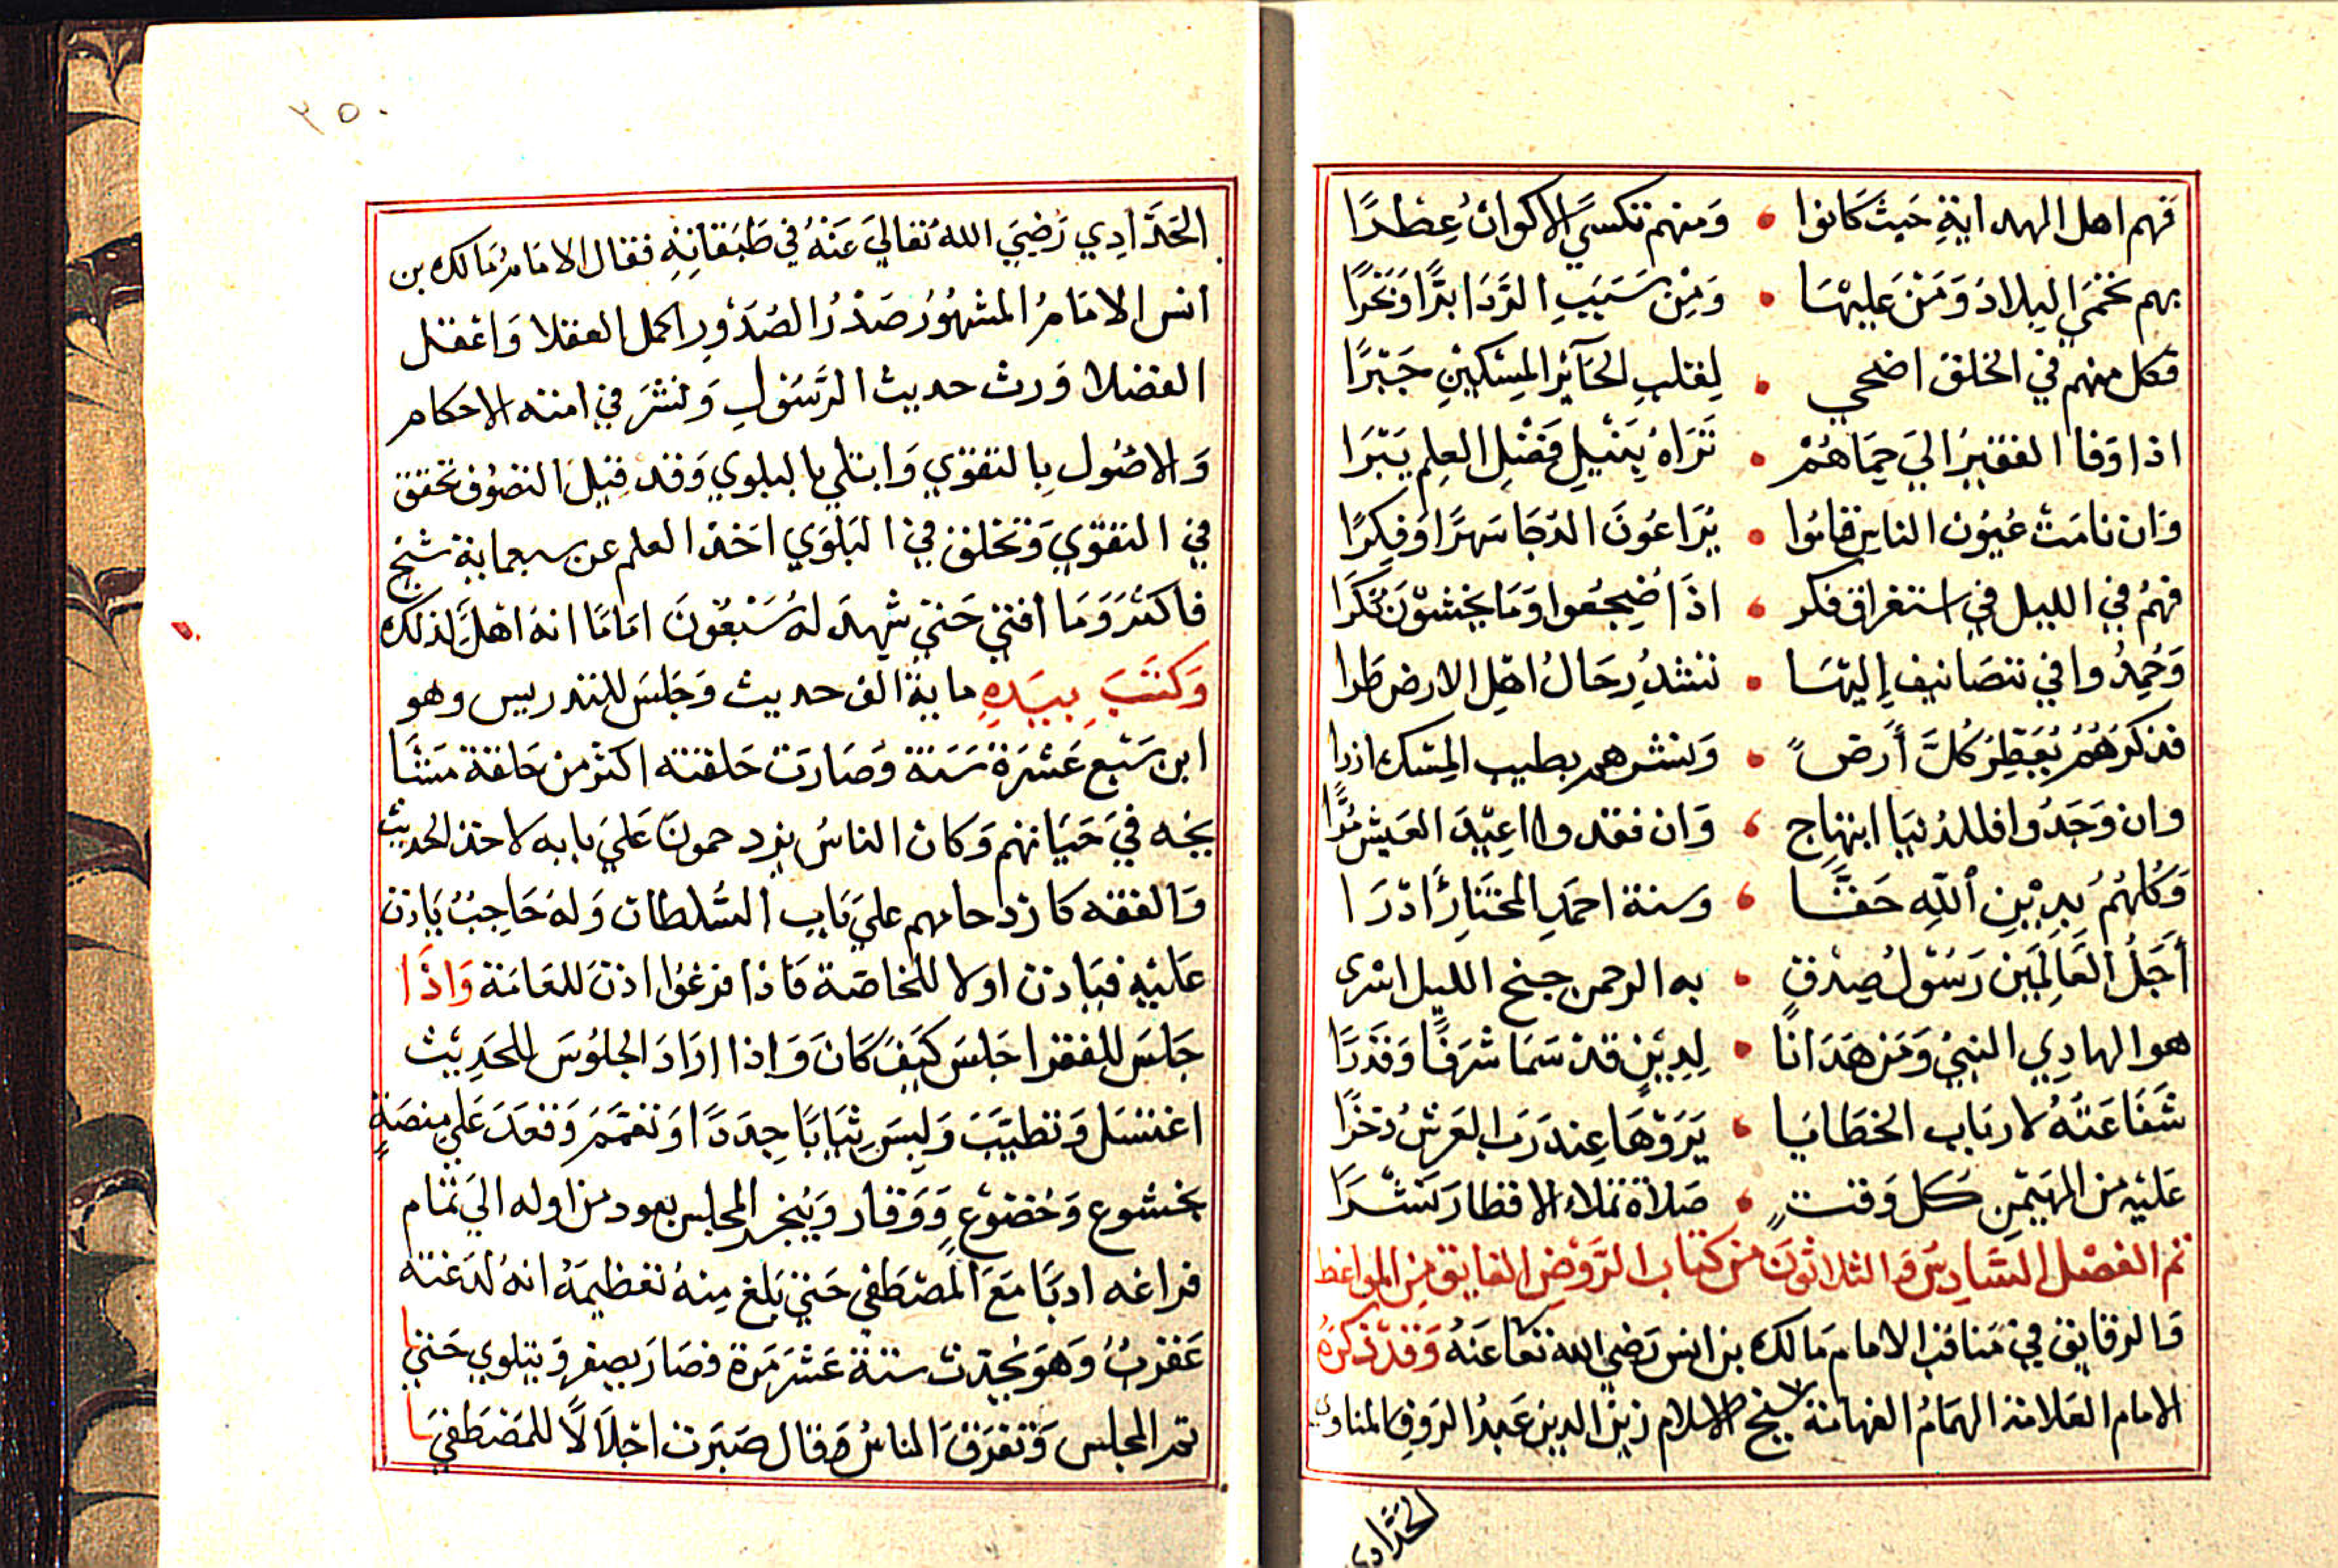 فهم اهل الهداية حيث كانوا • ومنهم تكتسي الاكوان عطرا
بهم تحمي البلاد ومن عليها • ومن سبب الردا برا وبحرا
فكل منهم في الخلق اضحي • لقلب الحآئر المسكين جبرا
اذا وفا الفقير الي حماهم • تراه بنيل فضل العلم يبرا
وان نامت عيون الناس قاموا • يراعون الدجا سهرا وفكرا
فهم في الليل في استغراق فكر • اذا ضجعوا وما يخشون نكرا
وحمدوا في تصانيف إليها • تشد رحال اهل الارض طرا
فذكرهم يعطر كل أرض • ونشرهم بطيب المسك ازرا
وان وجدوا فللدنيا ابتهاج • وان فقدوا اعيد العيش مرا
وكلهم بدين الله حقا • وسنة احمد المختار ادرا
أجل العالمين رسول صدق • به الرحمن جنح الليل اسرى
هو الهادي النبي ومن هدانا • لدين قد سما شرفا وقدرا
شفاعته لارباب الخطايا • يروها عند رب العرش ذخرا
عليه من المهيمن كل وقت • صلاة تملاء الاقطار نشرا
تم الفصل السادس والثلاثون من كتاب الروض الفايق من المواعظ
والرقايق في مناقب الامام مالك بن انس رضي الله تعا عنه وقد ذكره
الامام العلامة الهمام الفهامة شيخ الاسلام زين الدين عبد الروف المناوي
الحدادي
٢٥٠
الحدادي رضي الله تعالي عنه في طبقاته فقال الامام مالك بن
انس الامام المشهور صدر الصدور اكمل العقلا واعقل
الفضلا ورث حديث الرسول ونشر في امته الاحكام
والاصول بالتقوي وابتلي بالبلوي وقد قيل التصوف تحقق
في التقوي وتخلق في البلوي اخذ العلم عن سبعماية شيخ
فاكثر وما افتي حتي شهد له سبعون اماما انه اهل لذلك
وكتب بيده ماية الف حديث وجلس للتدريس وهو
ابن سبع عشرة سنة وصارت حلقته اكثر من حلقة مشا
يخه في حياتهم وكان الناس يزدحمون علي بابه لاخذ الحديث
والفقه كازدحامهم علي باب السلطان وله حاجب ياذن
عليه فياذن اولا للخاصة فاذا فرغوا اذن للعامة واذا
جلس للفقرا جلس كيف كان واذا اراد الجلوس للحديث
اغتسل وتطيب ولبس ثيابا جددا وتعمم وقعد علي منصة
بخشوع وخضوع ووقار ويبخر المجلس بعود من اوله الي تمام
فراغه ادبا مع المصطفي حتي بلغ منه تعظيمه انه لدغته
عقرب وهو يحدث ستة عشر مرة فصار يصفر ويتلوي حتي
تم المجلس وتفرق الناس وقال صبرت اجلالا للمصطفي